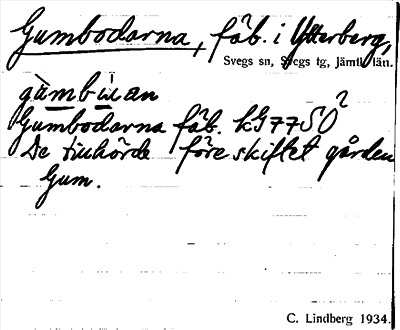 Gumbodarna, fäb. i Ytterberg,
Svegs sn, Svegs tg, Jämtl. län.
gùmbùan
Gumbodarna fäb. kG77SÖ?
De tillhörde före skiftet gården
Gum.
C. Lindberg 1934.